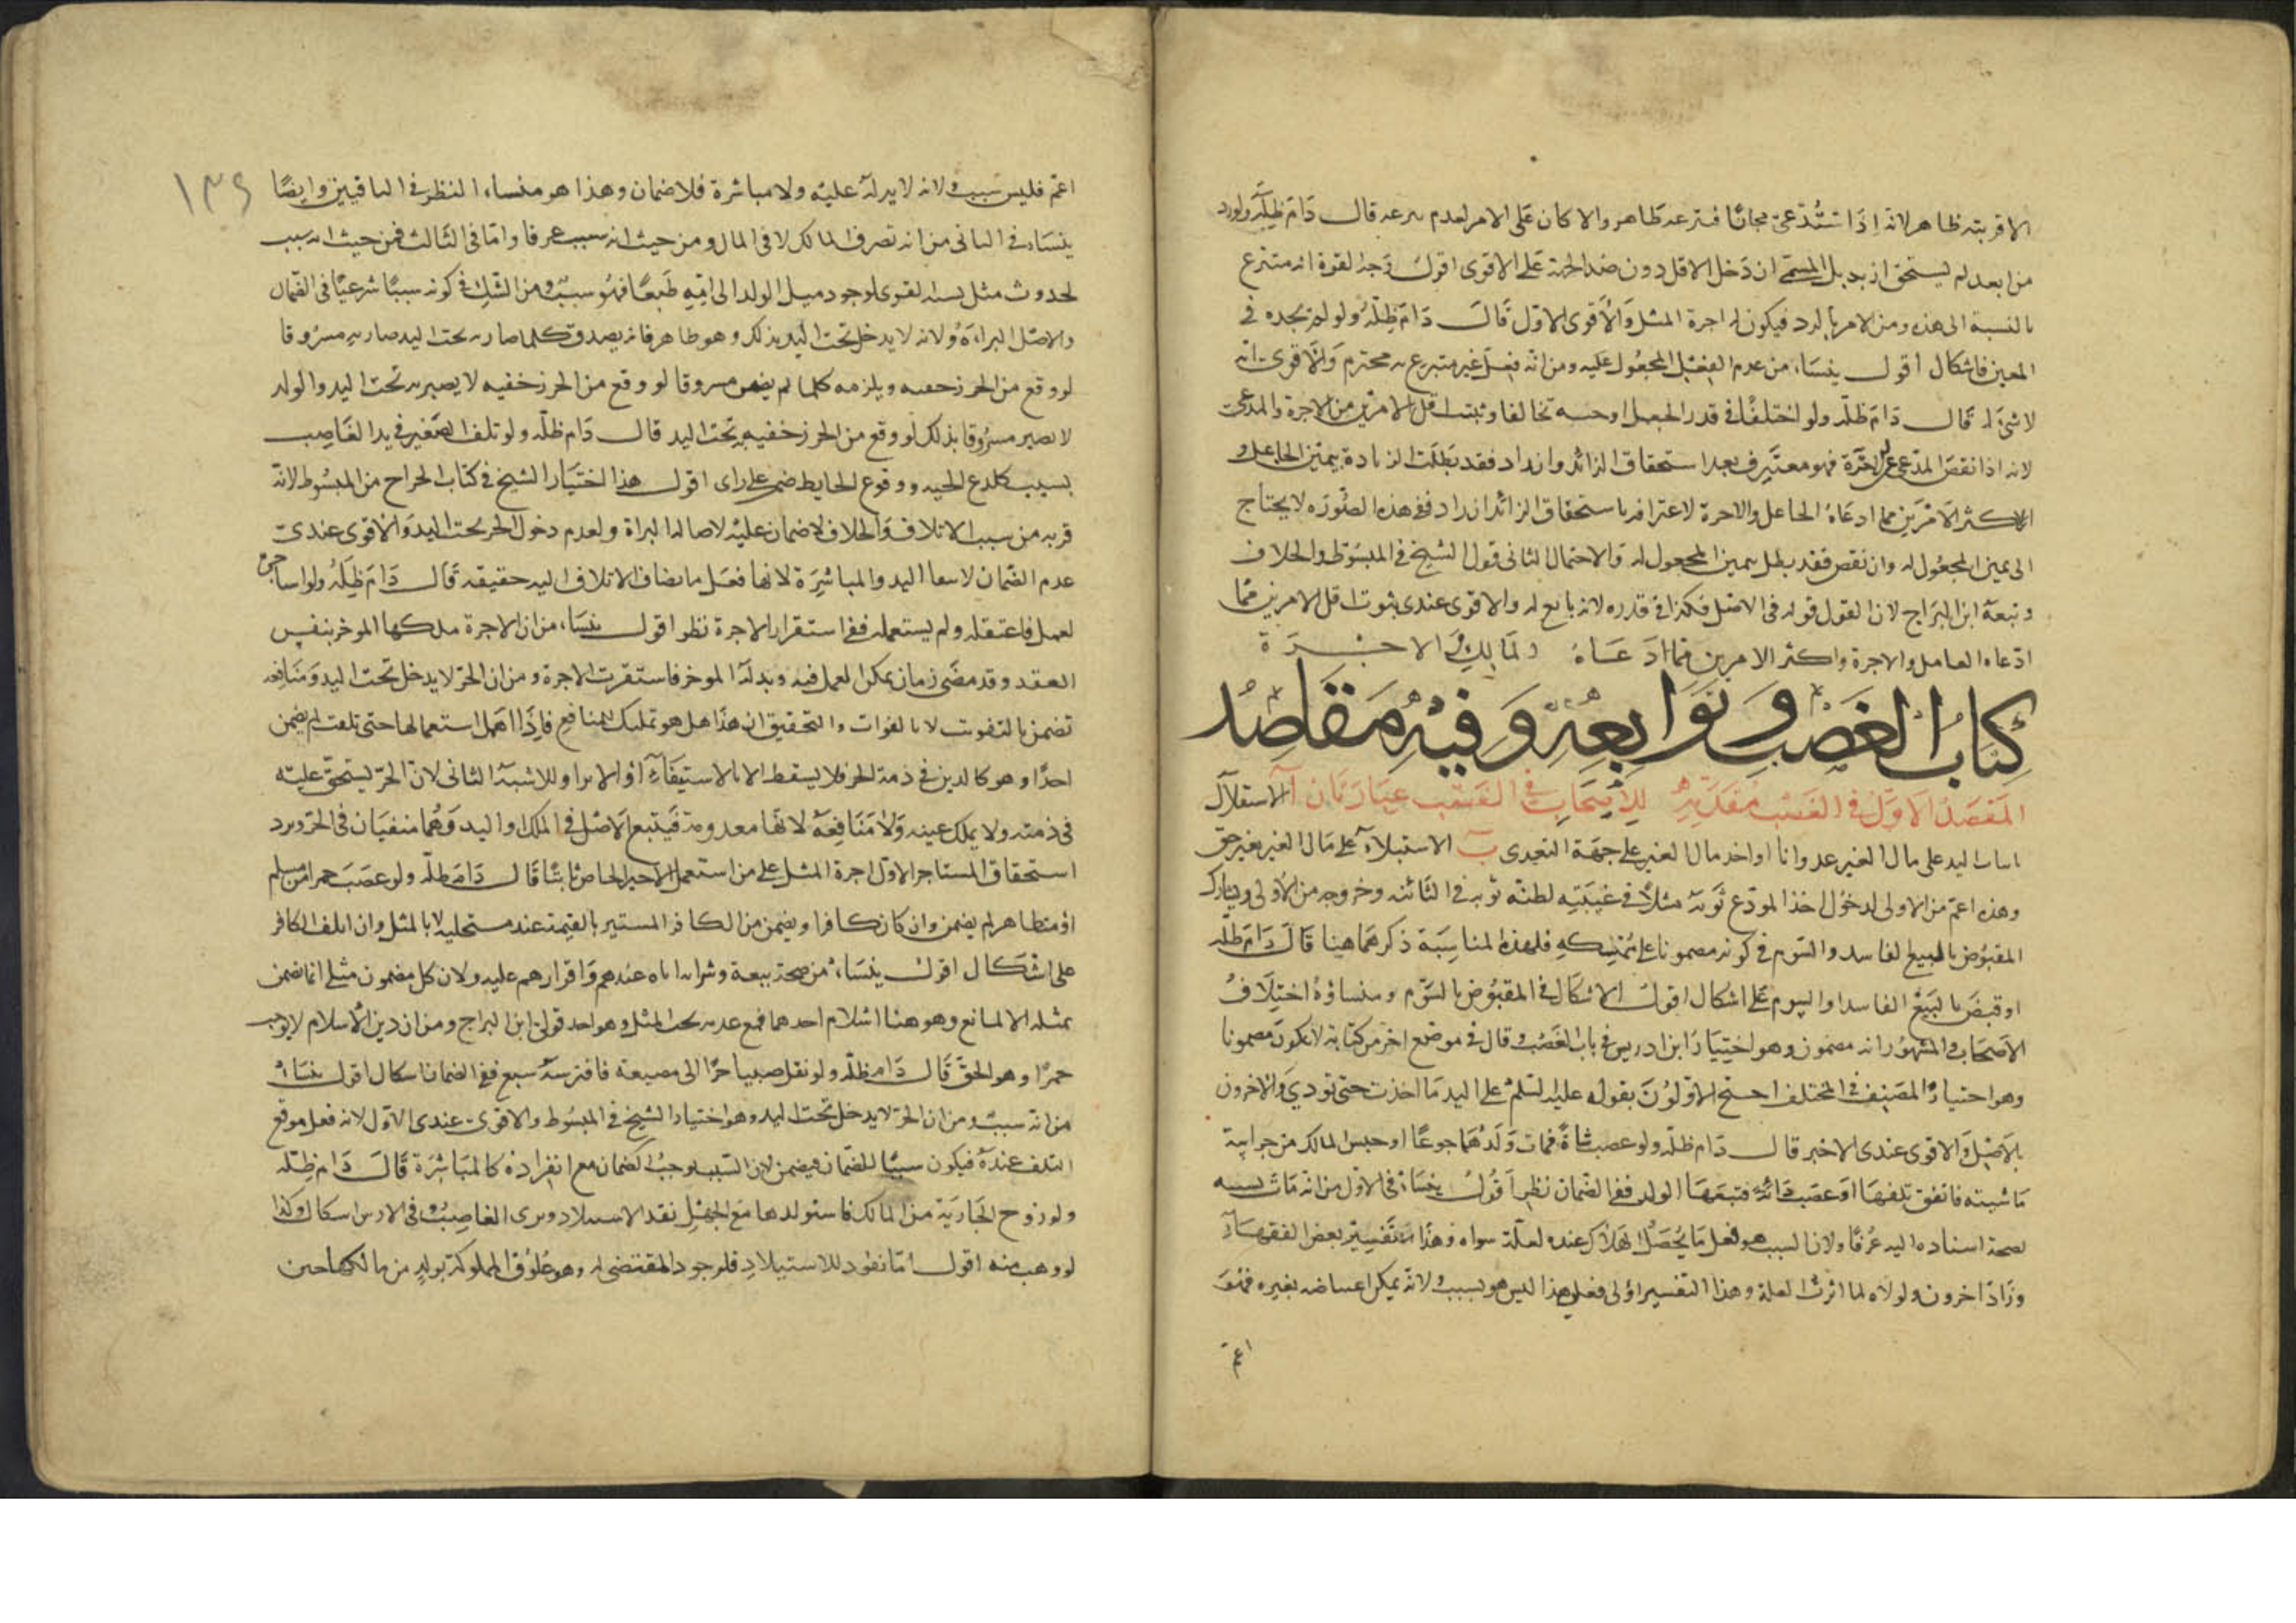 الاقربية ظاهر لانه اذا استدعى مجانا فتبرعه ظاهر والا كان على الامر لعدم تبرعه قال دام ظله ولو رد
من ابعد لم يستحق ازيد بل المسمى ان دخل الاقل دون ضد الجهة على الاقوى اقول وجه القوة انه متبرع
بالنسبة الى هذه ومن الامر بالرد فيكون له اجرة المثل والاقوى الاول قال دام ظله ولو لم يجده في
المعين فاشكال اقول ينشا من عدم الفعل المجعول عليه ومن انه فعل غير متبرع به محترم والاقوى انه
لا شئ له قال دام ظله ولو اختلفا في قدر الجعل او جنسه تخالفا وثبت اقل الامرين من الاجرة والمدعى
لانه اذا نقص المدعى عن الاجرة فهو معترف بعدم استحقاق الزائد وان زاد فقد بطلت الزيادة بيمين الجاعل و
اكثر الامرين مما ادعاه الجاعل والاجرة لاعترافه باستحقاق الزائد ان زاد ففي هذه الصورة لا يحتاج
الى يمين المجعول له وان نقص فقد بطل بيمين المجعول له والاحتمال الثاني قول الشيخ في المبسوط والخلاف
وتبعه ابن البراج لان القول قوله في الاصل فكذا في قدره لانه تابع له والاقوى عندي ثبوت اقل الامرين مما
ادعاه العامل والاجرة واكثر الامرين مما ادعاه المالك والاجرة
كتاب الغصب وتوابعه وفيه مقاصد
المقصد الاول في الغصب مقدمة للاصحاب في الغصب عبارتان آ الاستقلال
باثبات اليد على مال الغير عدوانا او اخذ مال الغير على جهة التعدي ب الاستيلاء على مال الغير بغير حق
وهذه اعم من الاولى لدخول اخذ المودع ثوبه مثلا في غيبته لظنه ثوبه في الثانية وخروجه من الاولى ويشارك
المقبوض بالبيع الفاسد والسوم في كونه مضمونا على ممسكه فلهذه المناسبة ذكرهما هنا قال دام ظله
او قبض بالبيع الفاسد او السوم على اشكال اقول الاشكال في المقبوض بالسوم ومنشاؤه اختلاف
الاصحاب والمشهور انه مضمون وهو اختيار ابن ادريس في باب الغصب وقال في موضع اخر من كتابه لا يكون مضمونا
وهو اختيار المصنف في المختلف احتج الاولون بقوله عليه السلم على اليد ما اخذت حتى تؤدي والاخرون
بالاصل والاقوى عندي الاخير قال دام ظله ولو غصب شاة فمات ولدها جوعا او حبس المالك عن حراسة
ماشيته فاتفق تلفها او غصب دابة فتبعها الولد ففي الضمان نظر اقول ينشا في الاول من انه مات بسببه
لصحة اسناده اليه عرفا ولان السبب هو فعل ما يحصل الهلاك عنده لعلة سواه وهذا تفسير بعض الفقهاء
وزاد اخرون ولولاه لما اثرت العلة وهذا التفسير اولى فعلى هذا ليس هو بسبب ولانه يمكن اعتياضه بغيره فهو
اعم
١٣٩
اعم فليس بسبب ولانه لا يد له عليه ولا مباشرة فلا ضمان وهذا هو منشاء النظر في الباقيين وايضا
ينشاء في الثاني من انه تصرف في المالك لا في المال ومن حيث انه سبب عرفا واما في الثالث فمن حيث انه سبب
لحدوث مثل القوى لوجود ميل الولد الى امه طبعا فهو سبب ومن الشك في كونه سببا شرعيا في الضمان
والاصل البراءة ولانه لا يدخل تحت اليد بذلك وهو ظاهر فانه يصدق كلما صار تحت اليد صار به مسروقا
لو وقع من الحرز خفية ويلزمه كلما لم يصر مسروقا لو وقع من الحرز خفيه لا يصير به تحت اليد والولد
لا يصير مسروقا بذلك لو وقع من الحرز خفيه تحت اليد قال دام ظله ولو تلف الصغير في يد الغاصب
بسبب كلدغ الحيه ووقوع الحايط ضمن على راى اقول هذا اختيار الشيخ في كتاب الجراح من المبسوط لانه
قربه من سبب الاتلاف والخلاف لا ضمان عليه لاصالة البراة ولعدم دخول الحر تحت اليد والاقوى عندي
عدم الضمان لانتفا اليد والمباشرة لانها فعل ما يضاف الاتلاف اليه حقيقة قال دام ظله ولو استاجره
لعمل فاعتقله ولم يستعمله ففي استقرار الاجرة نظر اقول ينشاء من ان الاجرة ملكها الموجر بنفس
العقد وقد مضى زمان يمكن العمل فيه وبذله الموجر فاستقرت الاجرة ومن ان الحر لا يدخل تحت اليد ومنافعه
تضمن بالتفويت لا بالفوات والتحقيق ان هذا هل هو تمليك للمنافع فاذا اهمل استعمالها حتى تلفت لم يضمن
احدا وهو كالدين في ذمة الحر فلا يسقط الا بالاستيفاء او الابرا وللاشبه الثاني لان الحر يستحق عليه
في ذمته ولا يملك عينه ولا منافعه لانها معدومة فيتبع الاصل في الملك او اليد وهما منفيان في الحر ويرد
استحقاق المستاجر الاول اجرة المثل على من استعمل الاجير الخاص ثابتا قال دام ظله ولو غصب خمرا من مسلم
او متظاهر لم يضمن وان كان كافرا ويضمن من الكافر المستتر بالقيمة عند مستحليه لا بالمثل وان اتلف الكافر
على اشكال اقول ينشاء من صحة بيعه وشرائه اياه عندهم واقرارهم عليه ولان كل مضمون مثلى انما يضمن
بمثله الا لمانع وهو هنا اسلام احدهما فمع عدمه يجب المثل وهو احد قولى ابن البراج ومن ان دين الاسلام لا يوجب
خمرا وهو الحق قال دام ظله ولو نقل صبيا حرا الى مضيعة فافترسه سبع ففي الضمان اشكال اقول ينشاء
من انه سبب ومن ان الحر لا يدخل تحت اليد وهو اختيار الشيخ في المبسوط والاقوى عندي الاول لانه فعل موقع
التلف عنده فيكون سببا للضمان فيضمن لان السبب يوجب الضمان مع انفراده كالمباشرة قال دام ظله
ولو زوج الجارية من المالك فاستولدها مع الجهل نفذ الاستيلاد وبرى الغاصب وفي الارش اشكال وكذا
لو وهب منه اقول اما نفوذ الاستيلاد فلوجود المقتضى له وهو علوق المملوكة بولد من مالكها حين